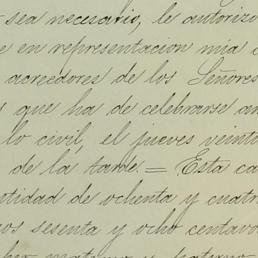 sea necesario, le autorizo
e en representacion mia
acreedores de los Señores
s que ha de celebrarse an
lo civil, el jueves veinti
de la tarde.= Esta ca
ntidad de ochenta y cuatr
os sesenta y ocho centavo